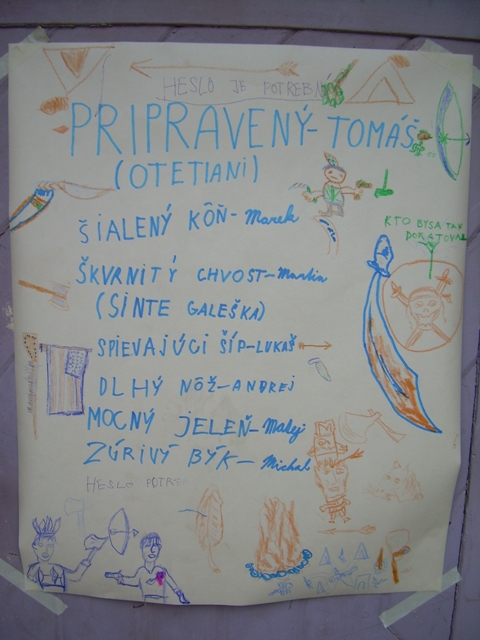 HESLO JE POTREBN
PRIPRAVENÝ-TOMÁŠ
(OTETIANI)
ŠIALENÝ KÔŇ-Marek
KTO BY SA TAM
DORATOVAL
ŠKVRNITÝ CHVOST-Martin
(SINTE GALEŠKA)
SPIEVAJÚCI ŠÍP-LUKAŠ
DLHÝ NÔŽ-ANDREJ
MOCNÝ JELEŇ-Matej
ZÚRIVÝ BÝK-Michal
HESLO POTREB